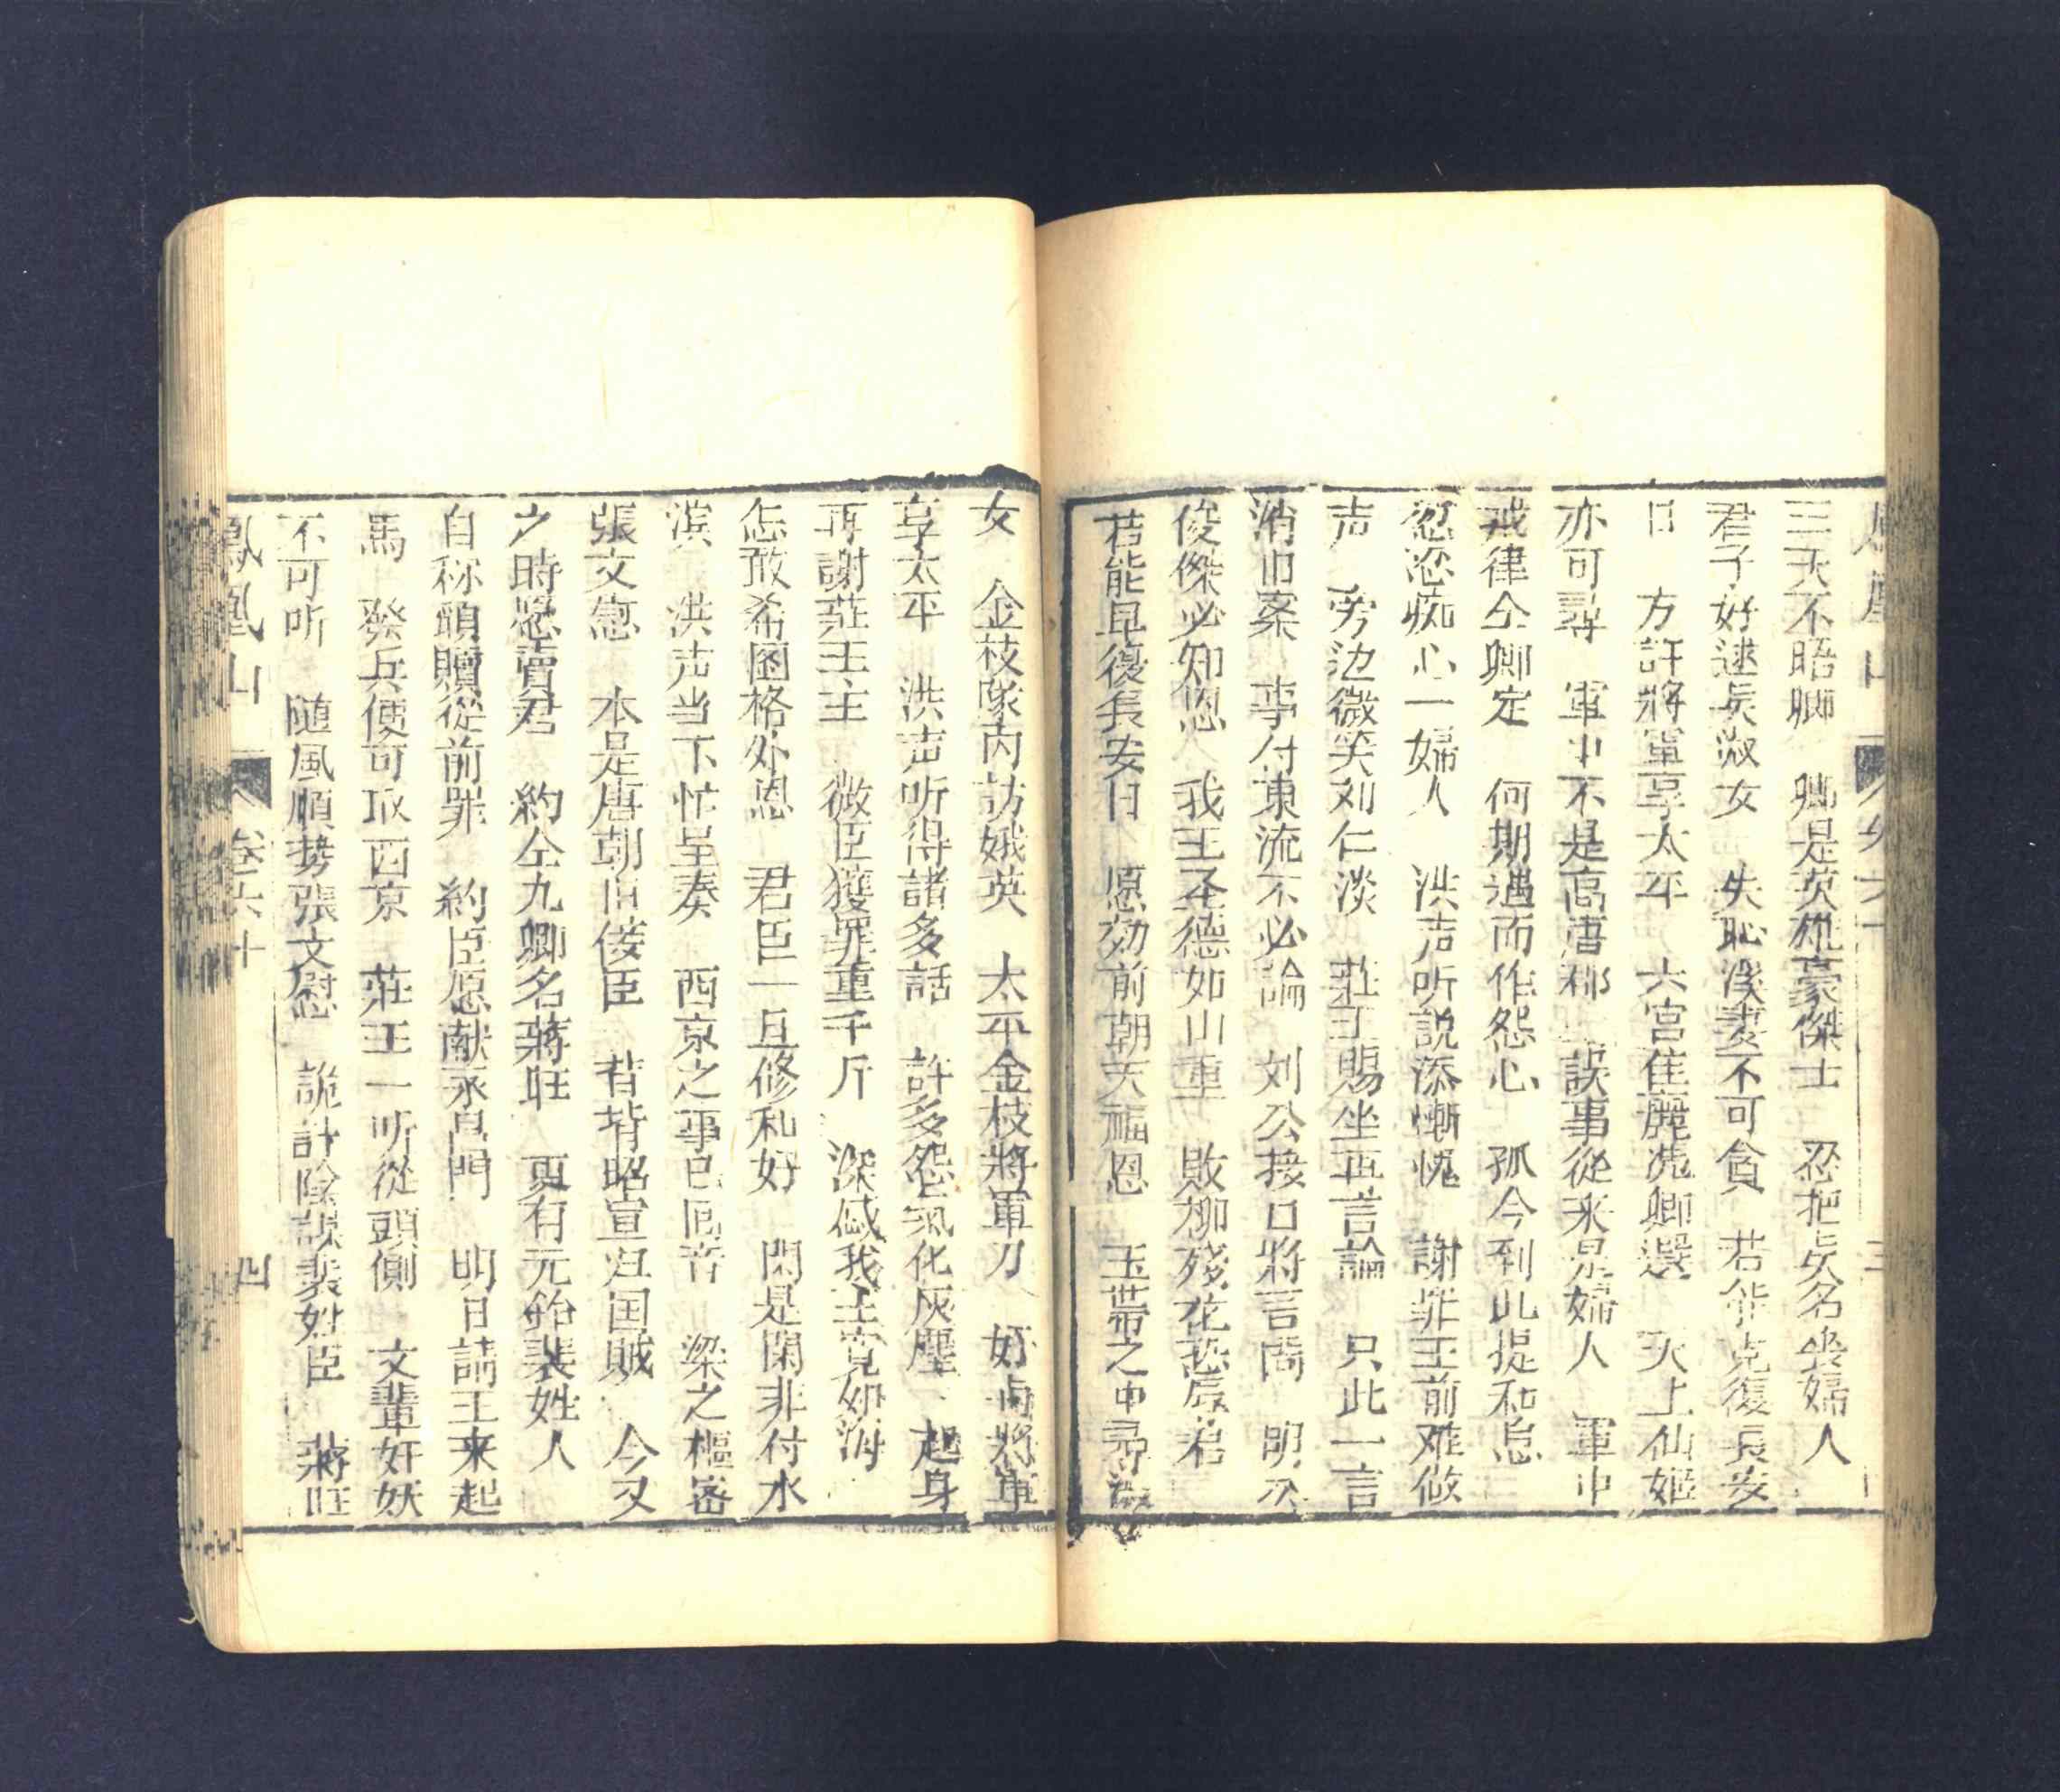 三天不晤卿　卿是英雄豪傑士　忍把失名喪婦人
君子好逑兵淑女　失恥淺妻不可貪　若能克復長安
日　方許將軍享太平　六宮住麗凴卿選　天上仙姬
亦可尋　軍中不是高唐郡　誤事從来是婦人　軍中
戒律仝卿定　何期遇而作怨心　孤今到此提和怠
忍恣痴心一婦人　洪声听説添慚愧　謝罪王前难做
声　旁边微笑刘仁淡　莊王賜坐再言論　只此一言
消旧案　事付東流不必論　刘公接口將言啇　明公
俊傑必知恩　我王圣德如山重　敗柳殘花恐辱君
若能早復長安日　愿効前朝天福恩　玉帶之中尋淑
女　金枝隊内訪娥英　太平金枝將軍乃　好與將軍
享太平　洪声听得諸多話　許多怨氣化灰塵　起身
再謝莊王主　微臣獲罪重千斤　深感我主寬如海
怎敢希圖格外恩　君臣一旦修私好　閃是閑非付水
濱　洪声当下忙呈奏　西京之事已回音　梁之樞密
張文慰　本是唐朝旧佞臣　昔背昭宣归国賊　今又
之時慫賣君　約仝九卿名蔣旺　更有元給裴姓人
自称頭贖從前罪　約臣愿献承昌門　明日請王来起
馬　發兵便可取西京　莊王一听從頭側　文輩奸妖
不可听　随風順势張文慰　詭計陰謀裴姓臣　蔣旺
鳳凰山　卷六十　四